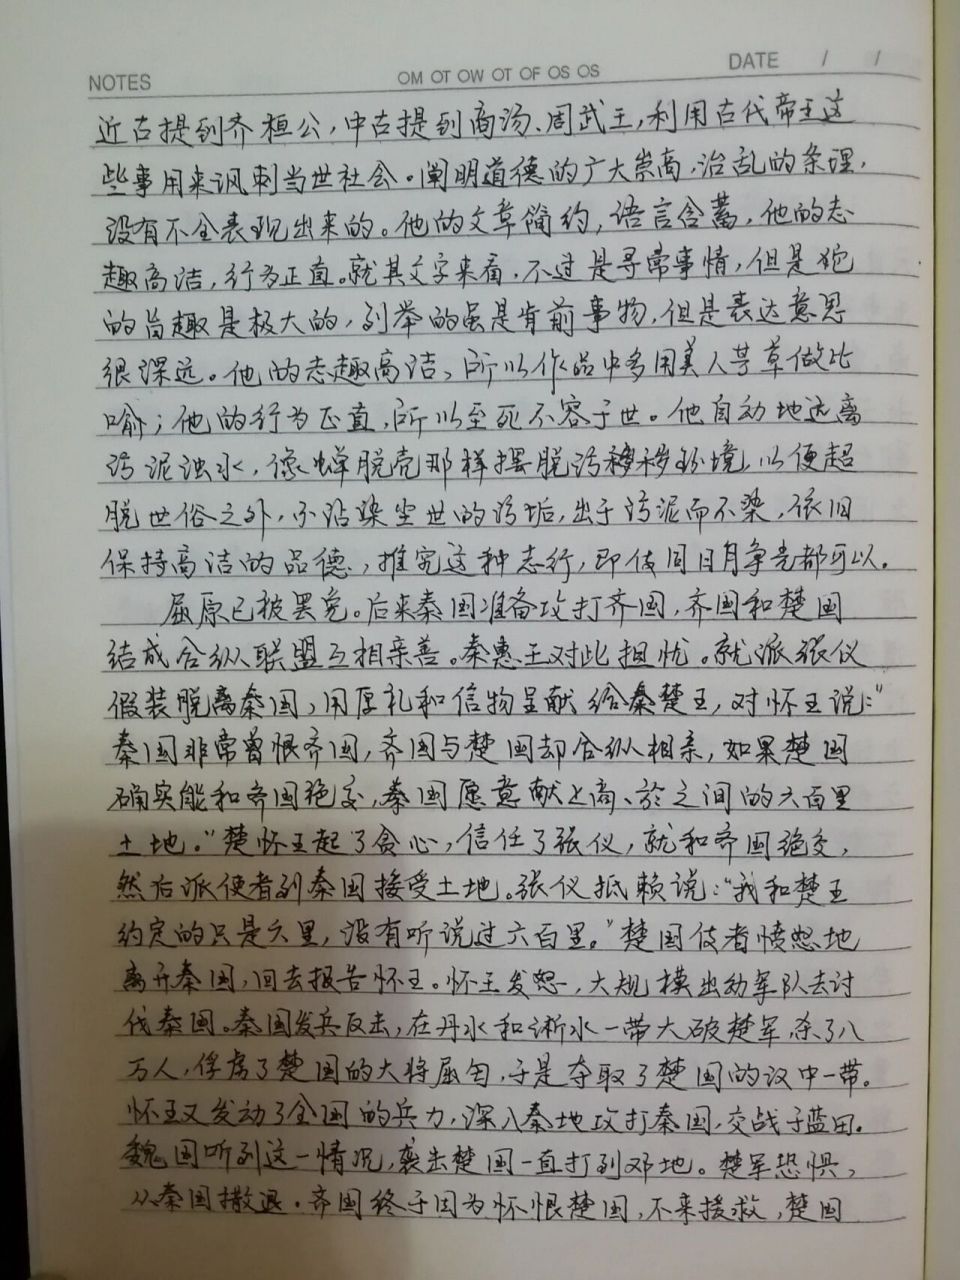 NOTES
OM OT OW OT OF OS OS
DATE / /
近古提到齐桓公，中古提到商汤、周武王，利用古代帝王这
些事用来讽刺当世社会。阐明道德的广大崇高，治乱的条理，
没有不全表现出来的。他的文章简约，语言含蓄，他的志
趣高洁，行为正直。就其文字来看，不过是寻常事情，但是他
的旨趣是极大的，列举的虽是眼前事物，但是表达意思
很深远。他的志趣高洁，所以作品中多用美人芳草做比
喻；他的行为正直，所以至死不容于世。他自动地远离
污泥浊水，像蝉脱壳那样摆脱污秽环境，以便超
脱世俗之外，不沾染尘世的污垢，出于污泥而不染，依旧
保持高洁的品德，推究这种志行，即使同日月争光都可以。
屈原已被罢免。后来秦国准备攻打齐国，齐国和楚国
结成合纵联盟互相亲善。秦惠王对此担忧。就派张仪
假装脱离秦国，用厚礼和信物呈献给楚王，对怀王说："
秦国非常曾恨齐国，齐国与楚国却合纵相亲，如果楚国
确实能和齐国绝交，秦国愿意献上商、於之间的六百里
土地。"楚怀王起了贪心，信任了张仪，就和齐国绝交，
然后派使者到秦国接受土地。张仪抵赖说："我和楚王
约定的只是六里，没有听说过六百里。"楚国使者愤怒地
离开秦国，回去报告怀王。怀王发怒，大规模出动军队去讨
伐秦国。秦国发兵反击，在丹水和淅水一带大破楚军，杀了八
万人，俘虏了楚国的大将屈匄，于是夺取了楚国的汉中一带。
怀王又发动了全国的兵力，深入秦地攻打秦国，交战于蓝田。
魏国听到这一情况，袭击楚国一直打到邓地。楚军恐惧，
从秦国撤退。齐国终于因为怀恨楚国，不来援救，楚国